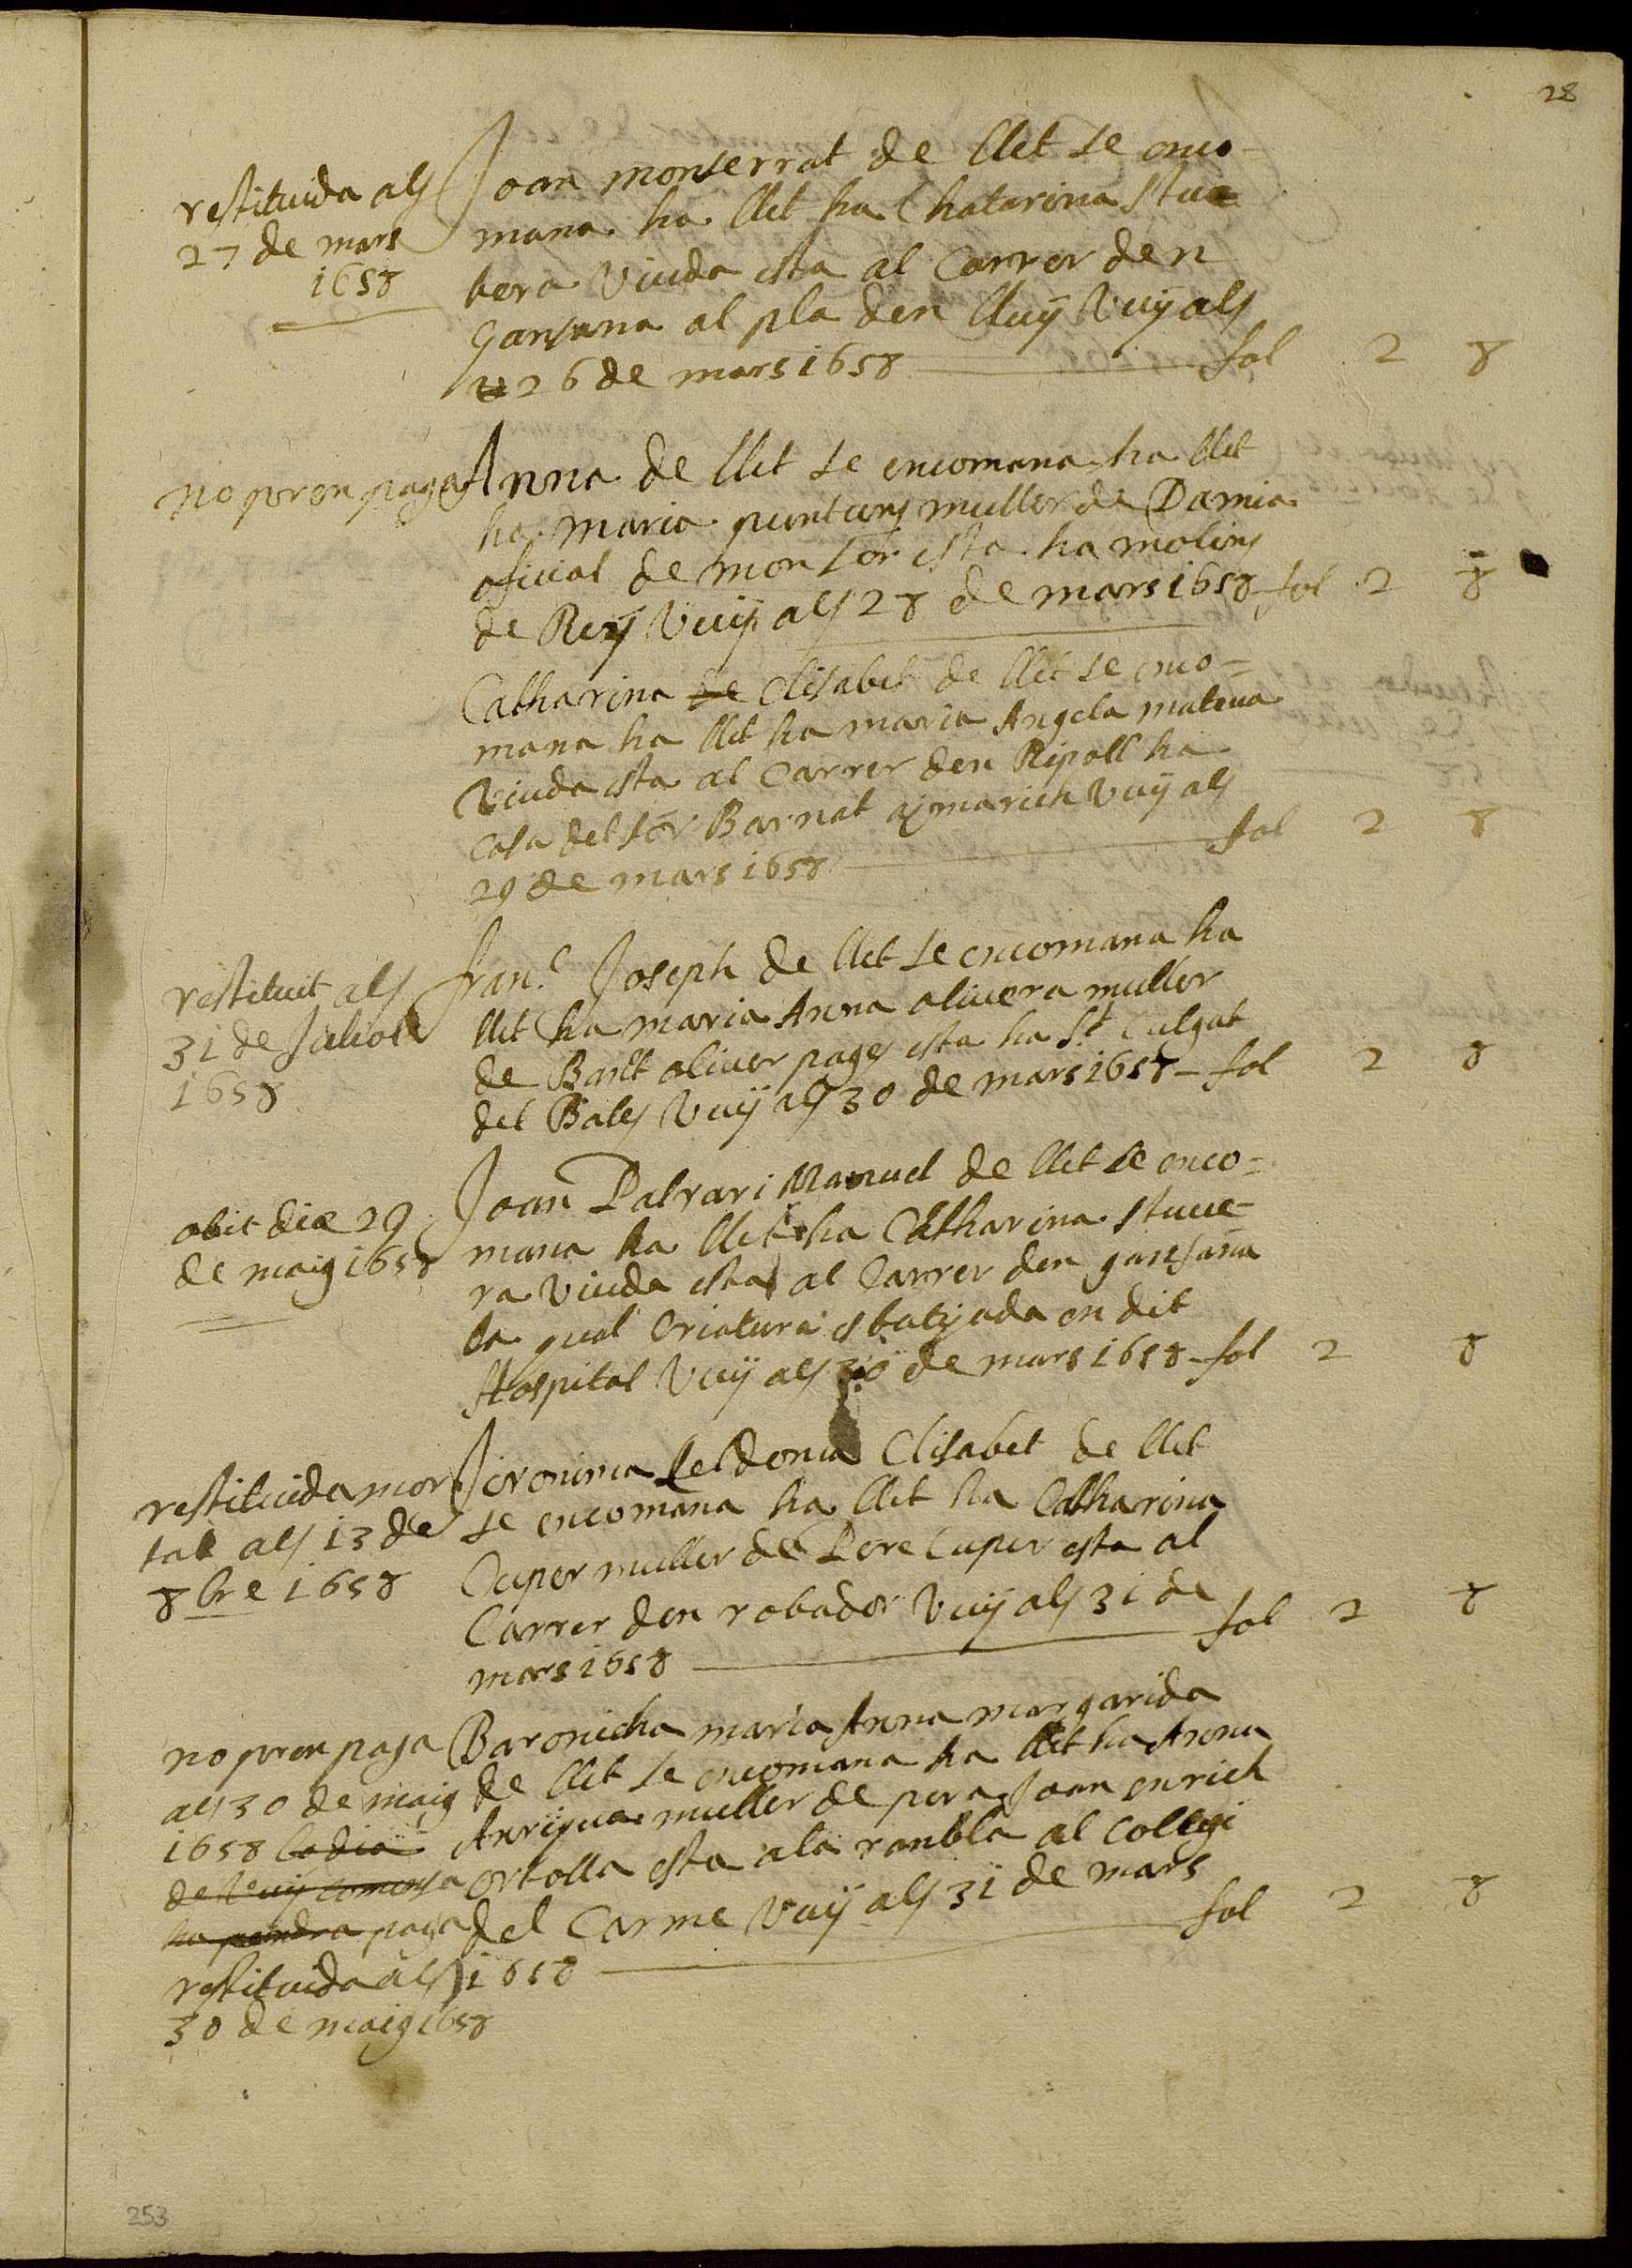 28
restituida als
27 de mars
1658
Joan monserrat de llet se enco-
mana ha llet ha Chatarina stue
bera viuda esta al Carrer den
Gansana al pla den lluÿ vuÿ als
26 de mars 1658 fol 2 8
no pren paga
Anna de llet se encomana ha llet
ha maria punturs muller de Damia
oficial de mon Sor esta ha molins
de Reÿ vuÿ als 28 de mars 1658 fol 2 8
Catharina de Elisabet de llet se enco=
mana ha llet ha maria Angela mateua
viuda esta al Carrer den Ripoll ha
casa del Sor Barnat aÿmarich vuÿ als
29 de mars 1658 fol 2 8
restituit als
31 de Juliol
1658
fran.c Joseph de llet se encomana ha
llet ha maria Anna oliuera muller
de Bart oliver pages esta ha St Culgat
del Bales vuÿ als 30 de mars 1658 - fol 2 8
obit die 29
de maig 1658
Joan Manuel de llet se enco=
mana ha llet ha Catharina stuue=
ra viuda esta al Carrer den gansana
la qual Criatura es batejada en dit
Hospital vuÿ als 30 de mars 1658 fol 2 8
restituida mor
tal als 13 de
8bre 1658
Jeronima Seldonia Elisabet de llet
se encomana ha llet ha Catharina
Cuper muller de Pere Cuper esta al
Carrer den robador vuÿ als 31 de
mars 1658 fol 2 8
no pren paga
als 30 de maig
1658 lo dia
de vuÿ comensa
ha pendra paga
restituida als
30 de maig 1658
Baronicha maria Anna margarida
de llet se encomana ha llet ha Anna
Anrigua muller de pera Joan enrich
ortolla esta a la ranbla al Collegi
del Carme vuÿ als 31 de mars
1658 fol 2 8
253